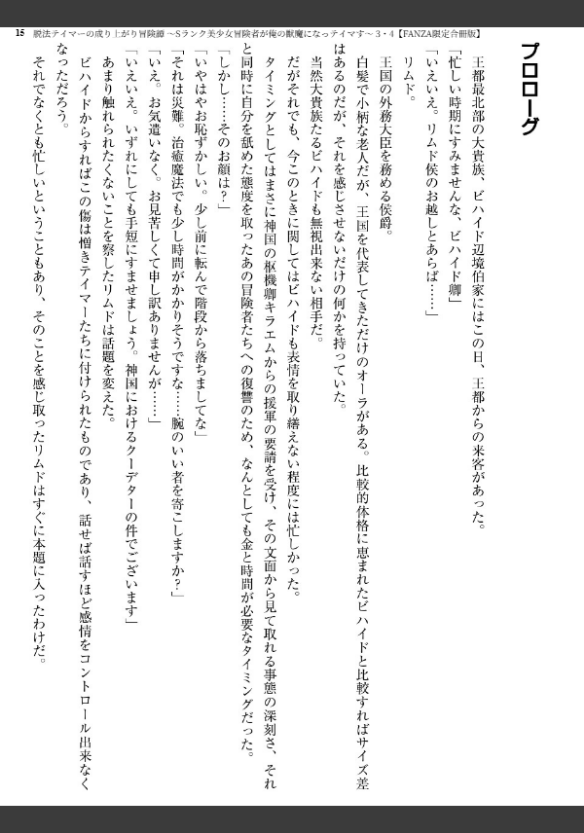 15 脱法テイマーの成り上がり冒険譚 ～Sランク美少女冒険者が俺の獣魔になっテイマす～ 3・4【FANZA限定合冊版】
プロローグ
王都最北部の大貴族、ビハイド辺境伯家にはこの日、王都からの来客があった。
「忙しい時期にすみませんな、ビハイド卿」
「いえいえ。リムド侯のお越しとあらば……」
リムド。
王国の外務大臣を務める侯爵。
白髪で小柄な老人だが、王国を代表してきただけのオーラがある。比較的体格に恵まれたビハイドと比較すればサイズ差
はあるのだが、それを感じさせないだけの何かを持っていた。
当然大貴族たるビハイドも無視出来ない相手だ。
だがそれでも、今このときに関してはビハイドも表情を取り繕えない程度には忙しかった。
タイミングとしてはまさに神国の枢機卿キラエムからの援軍の要請を受け、その文面から見て取れる事態の深刻さ、それ
と同時に自分を舐めた態度を取ったあの冒険者たちへの復讐のため、なんとしても金と時間が必要なタイミングだった。
「しかし……そのお顔は？」
「いやはやお恥ずかしい。少し前に転んで階段から落ちましてな」
「それは災難。治癒魔法でも少し時間がかかりそうですな……腕のいい者を寄こしますか？」
「いえ。お気遣いなく。お見苦しくて申し訳ありませんが……」
「いえいえ。いずれにしても手短にすませましょう。神国におけるクーデターの件でございます」
あまり触れられたくないことを察したリムドは話題を変えた。
ビハイドからすればこの傷は憎きテイマーたちに付けられたものであり、話せば話すほど感情をコントロール出来なく
なっただろう。
それでなくとも忙しいということもあり、そのことを感じ取ったリムドはすぐに本題に入ったわけだ。